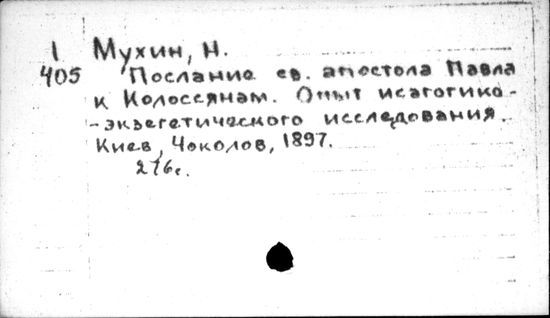 1 Мухин, Н.
405 Послание св. апостола Павла
к Колоссянам. Опыт исагогико-
-экзегетического исследования.
Киев, Чоколов, 1897.
216с.